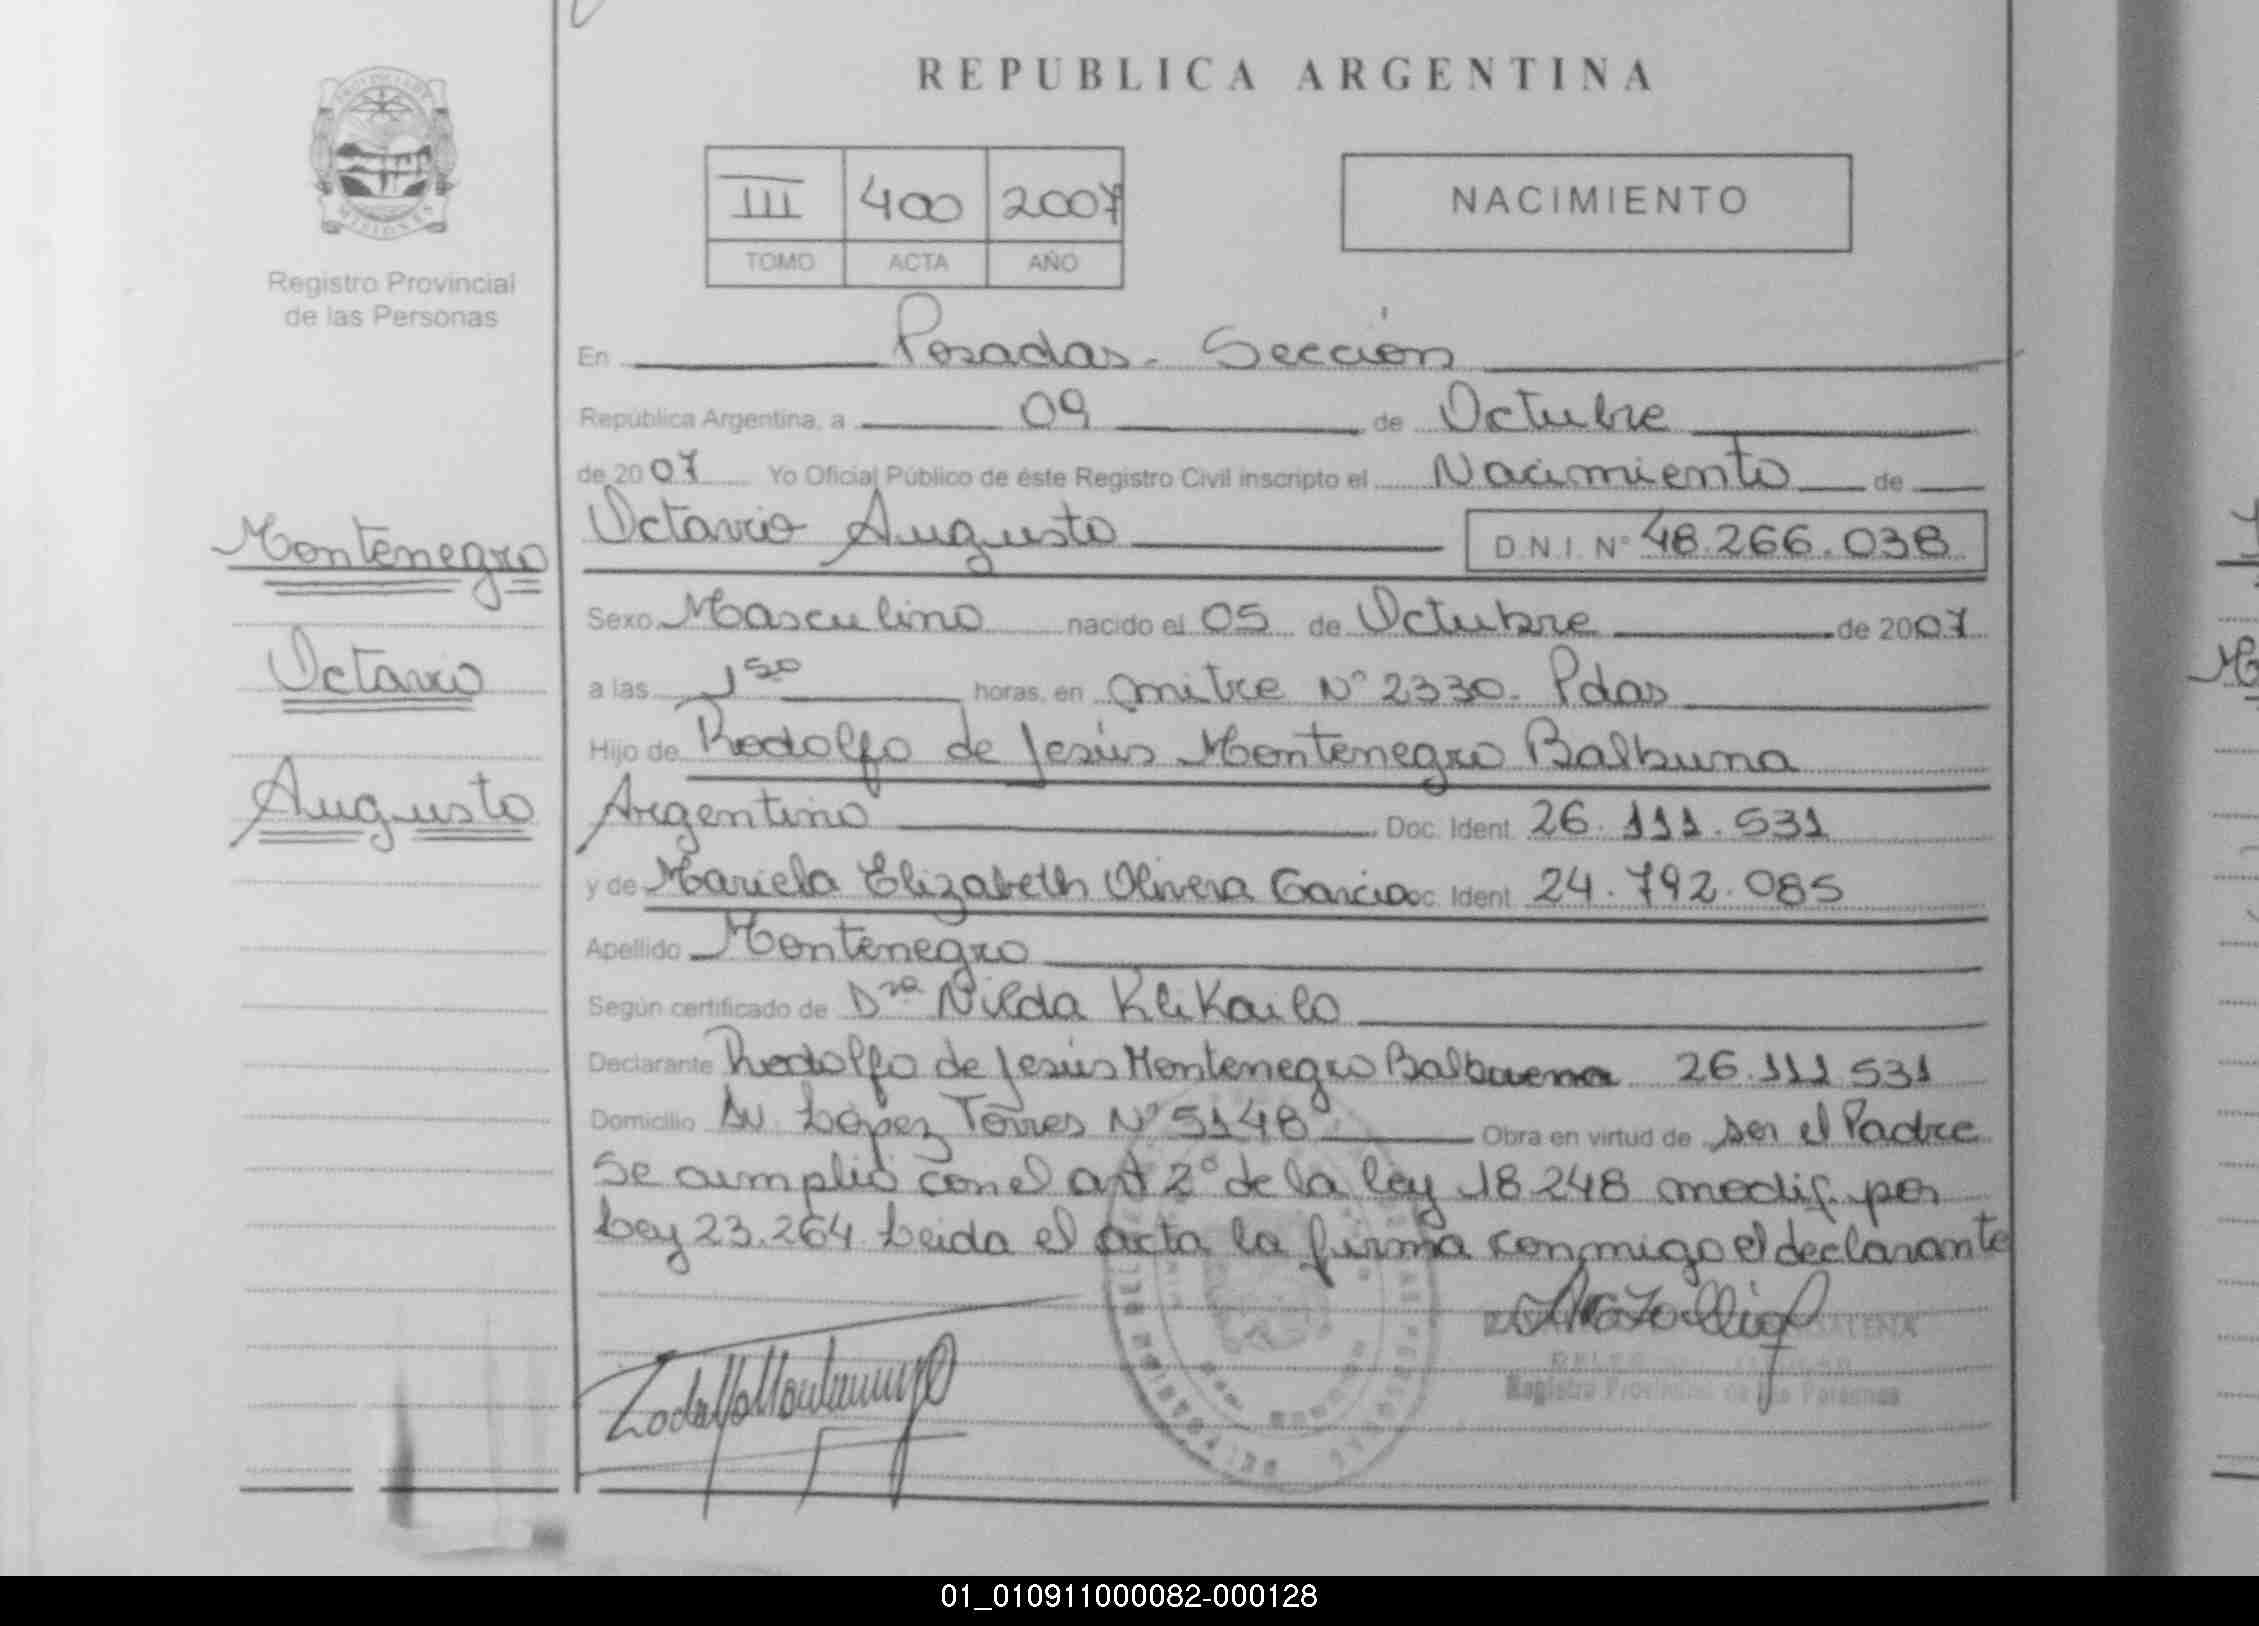 REPUBLICA ARGENTINA
PROVINCIA DE
MISIONES
Registro Provincial
de las Personas
III 400 2007
TOMO ACTA AÑO
NACIMIENTO
En Posadas - Sección
República Argentina, a 09 de Octubre
de 2007 Yo Oficial Público de éste Registro Civil inscripto el Nacimiento de
Octavio Augusto D.N.I. Nº 48.266.038
Montenegro
Octavio
Augusto
Sexo Masculino nacido el 05 de Octubre de 2007
a las 1 50 horas, en mitre Nº 2330. Pdas
Hijo de Rodolfo de Jesús Montenegro Balbuna
Argentino Doc. Ident. 26.111.531
y de Mariela Elizabeth Olivera Garcia oc. Ident. 24.792.085
Apellido Montenegro
Según certificado de Dra Nilda Klikailo
Declarante Rodolfo de Jesús Montenegro Balbuena 26.111 531
Domicilio Av. López Torres Nº 5148 Obra en virtud de ser el Padre
Se cumplió con el art 2º de la ley 18 248 modif. por
Ley 23.264 Leida el acta la firma conmigo el declarante
Registro Provincial de las Personas
01_010911000082-000128